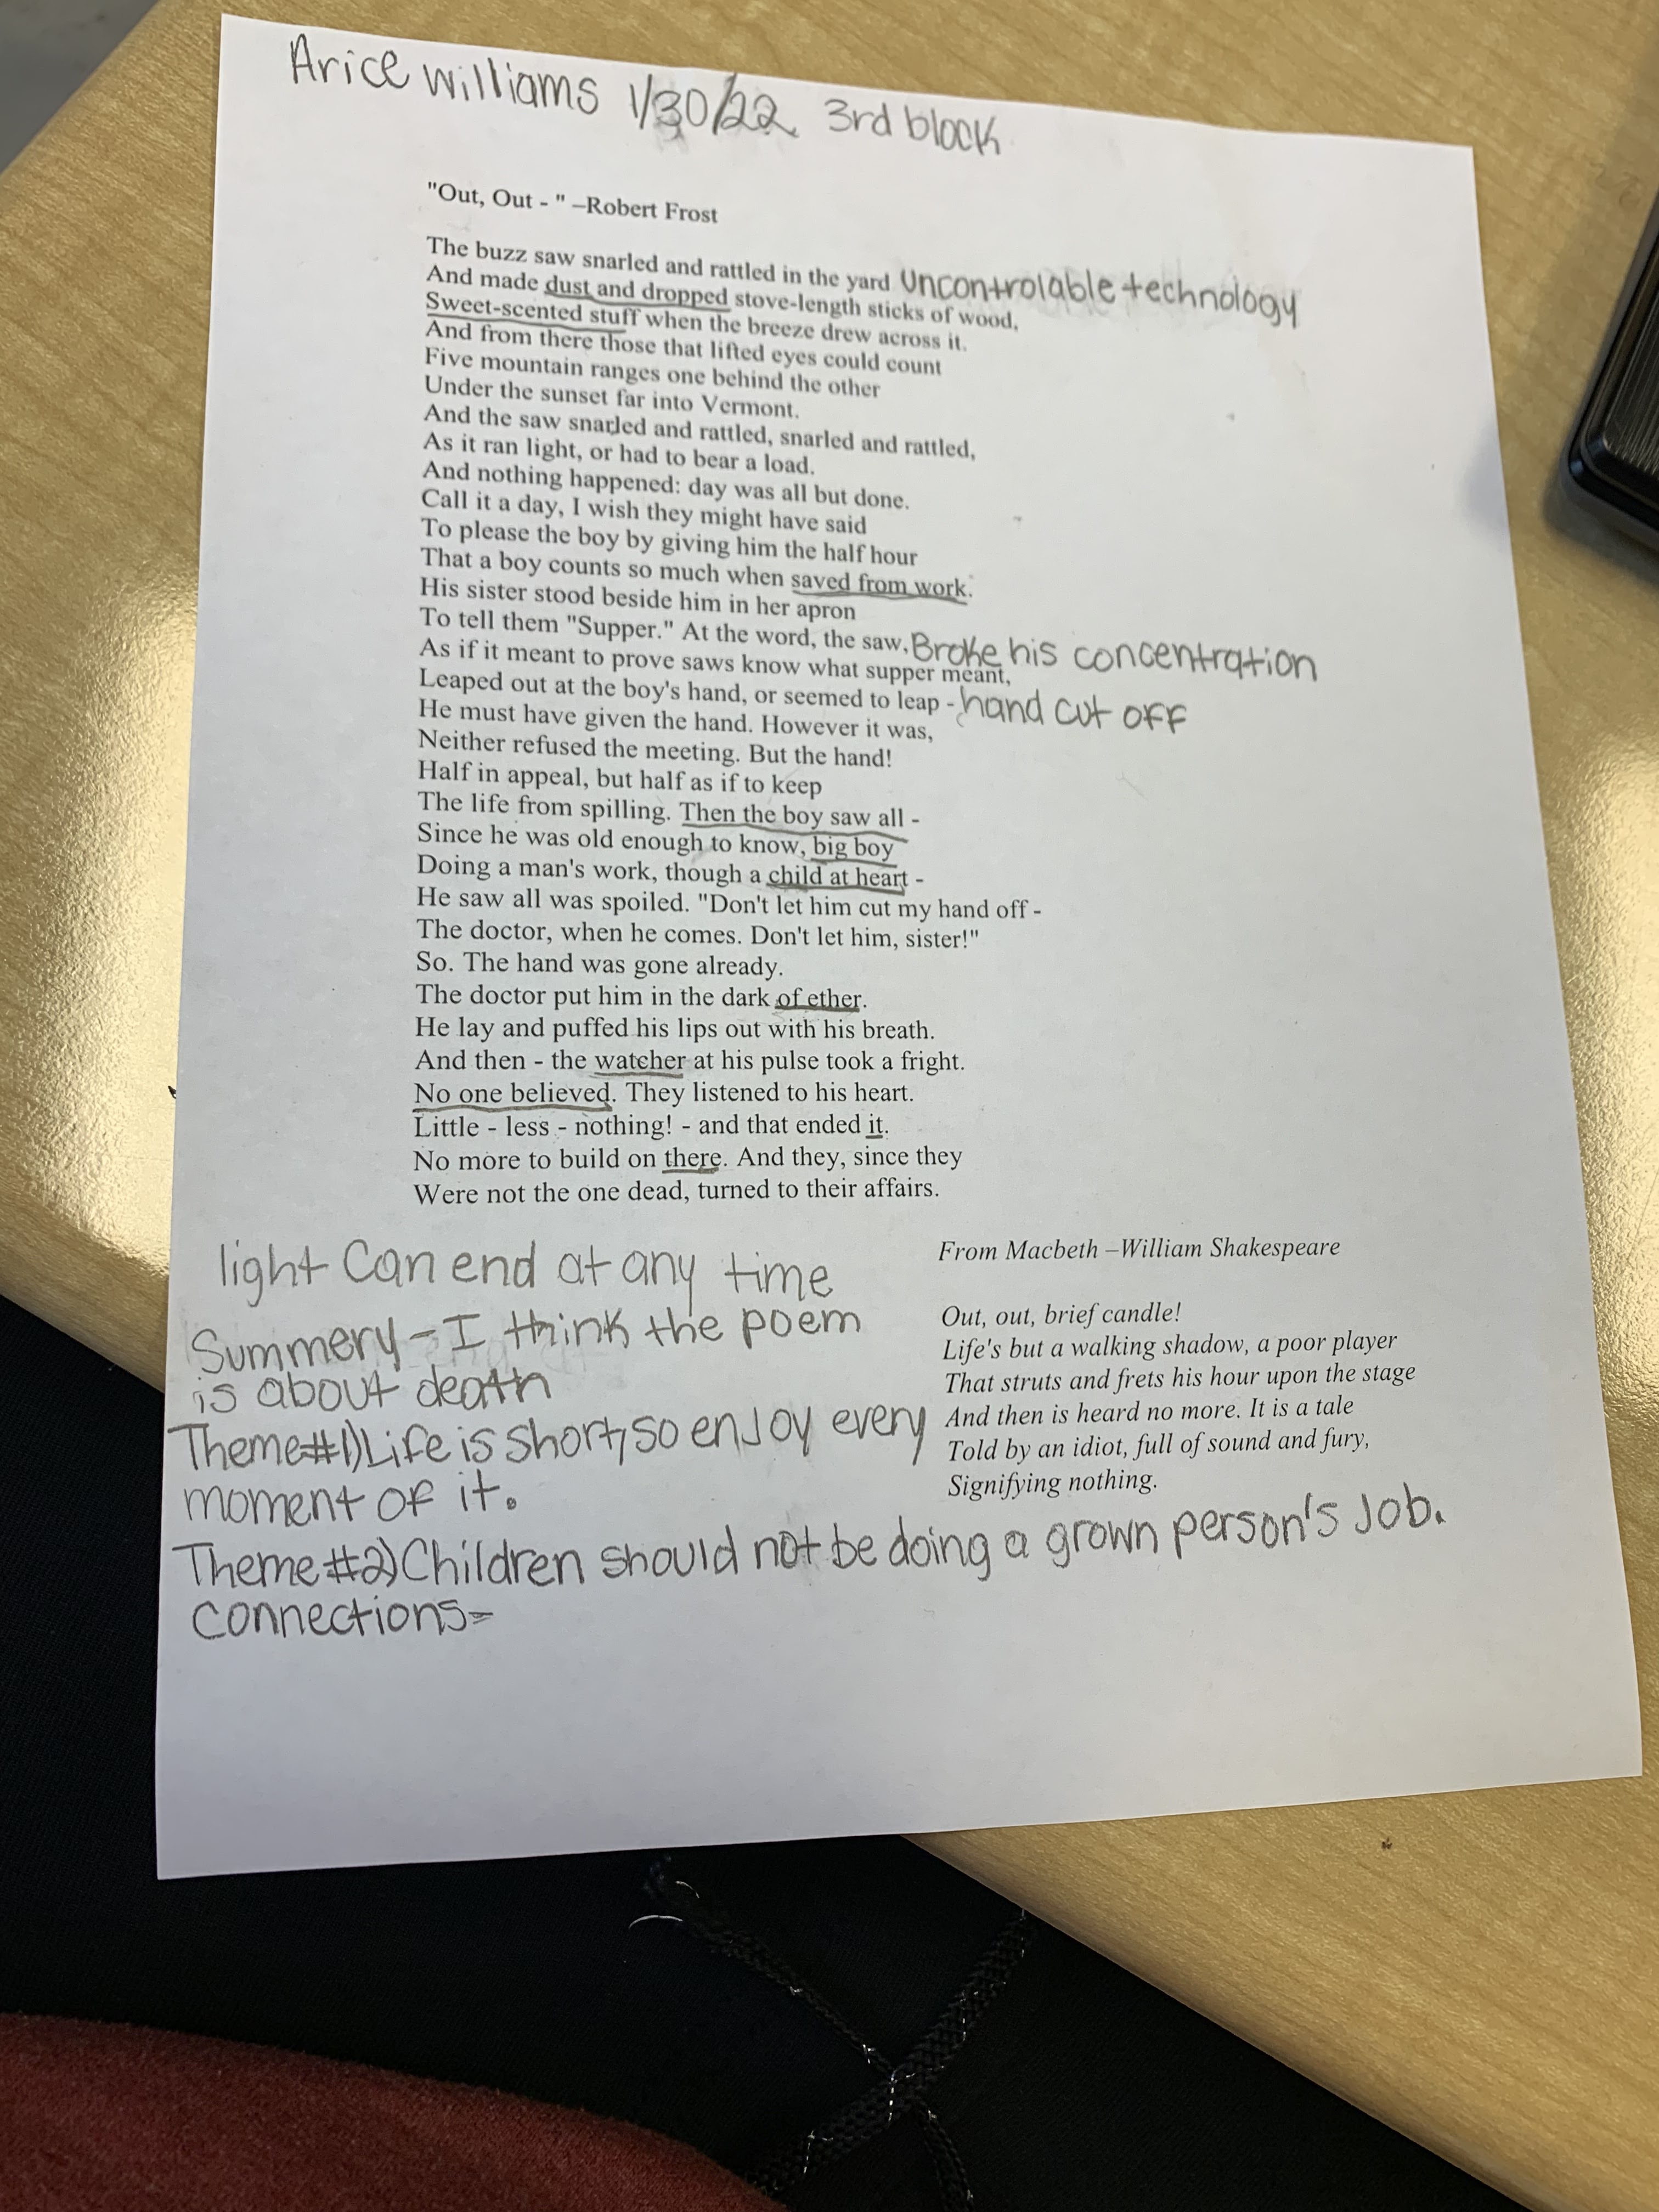 Arice williams 1/30/22 3rd block
"Out, Out - " –Robert Frost
The buzz saw snarled and rattled in the yard Uncontrolable technology
And made dust and dropped stove-length sticks of wood,
Sweet-scented stuff when the breeze drew across it.
And from there those that lifted eyes could count
Five mountain ranges one behind the other
Under the sunset far into Vermont.
And the saw snarled and rattled, snarled and rattled,
As it ran light, or had to bear a load.
And nothing happened: day was all but done.
Call it a day, I wish they might have said
To please the boy by giving him the half hour
That a boy counts so much when saved from work.
His sister stood beside him in her apron
To tell them "Supper." At the word, the saw, Broke his concentration
As if it meant to prove saws know what supper meant,
Leaped out at the boy's hand, or seemed to leap - hand cut off
He must have given the hand. However it was,
Neither refused the meeting. But the hand!
Half in appeal, but half as if to keep
The life from spilling. Then the boy saw all -
Since he was old enough to know, big boy
Doing a man's work, though a child at heart -
He saw all was spoiled. "Don't let him cut my hand off -
The doctor, when he comes. Don't let him, sister!"
So. The hand was gone already.
The doctor put him in the dark of ether.
He lay and puffed his lips out with his breath.
And then - the watcher at his pulse took a fright.
No one believed. They listened to his heart.
Little - less - nothing! - and that ended it.
No more to build on there. And they, since they
Were not the one dead, turned to their affairs.
light Can end at any time
Summery - I think the poem
is about death
Theme#1) Life is short, so enjoy every
moment of it.
Theme#2) Children should not be doing a grown person's Job.
Connections=
From Macbeth –William Shakespeare
Out, out, brief candle!
Life's but a walking shadow, a poor player
That struts and frets his hour upon the stage
And then is heard no more. It is a tale
Told by an idiot, full of sound and fury,
Signifying nothing.